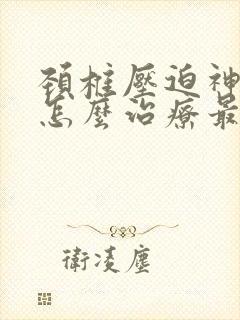 頸椎壓迫神
怎麼治療最
衛凌塵